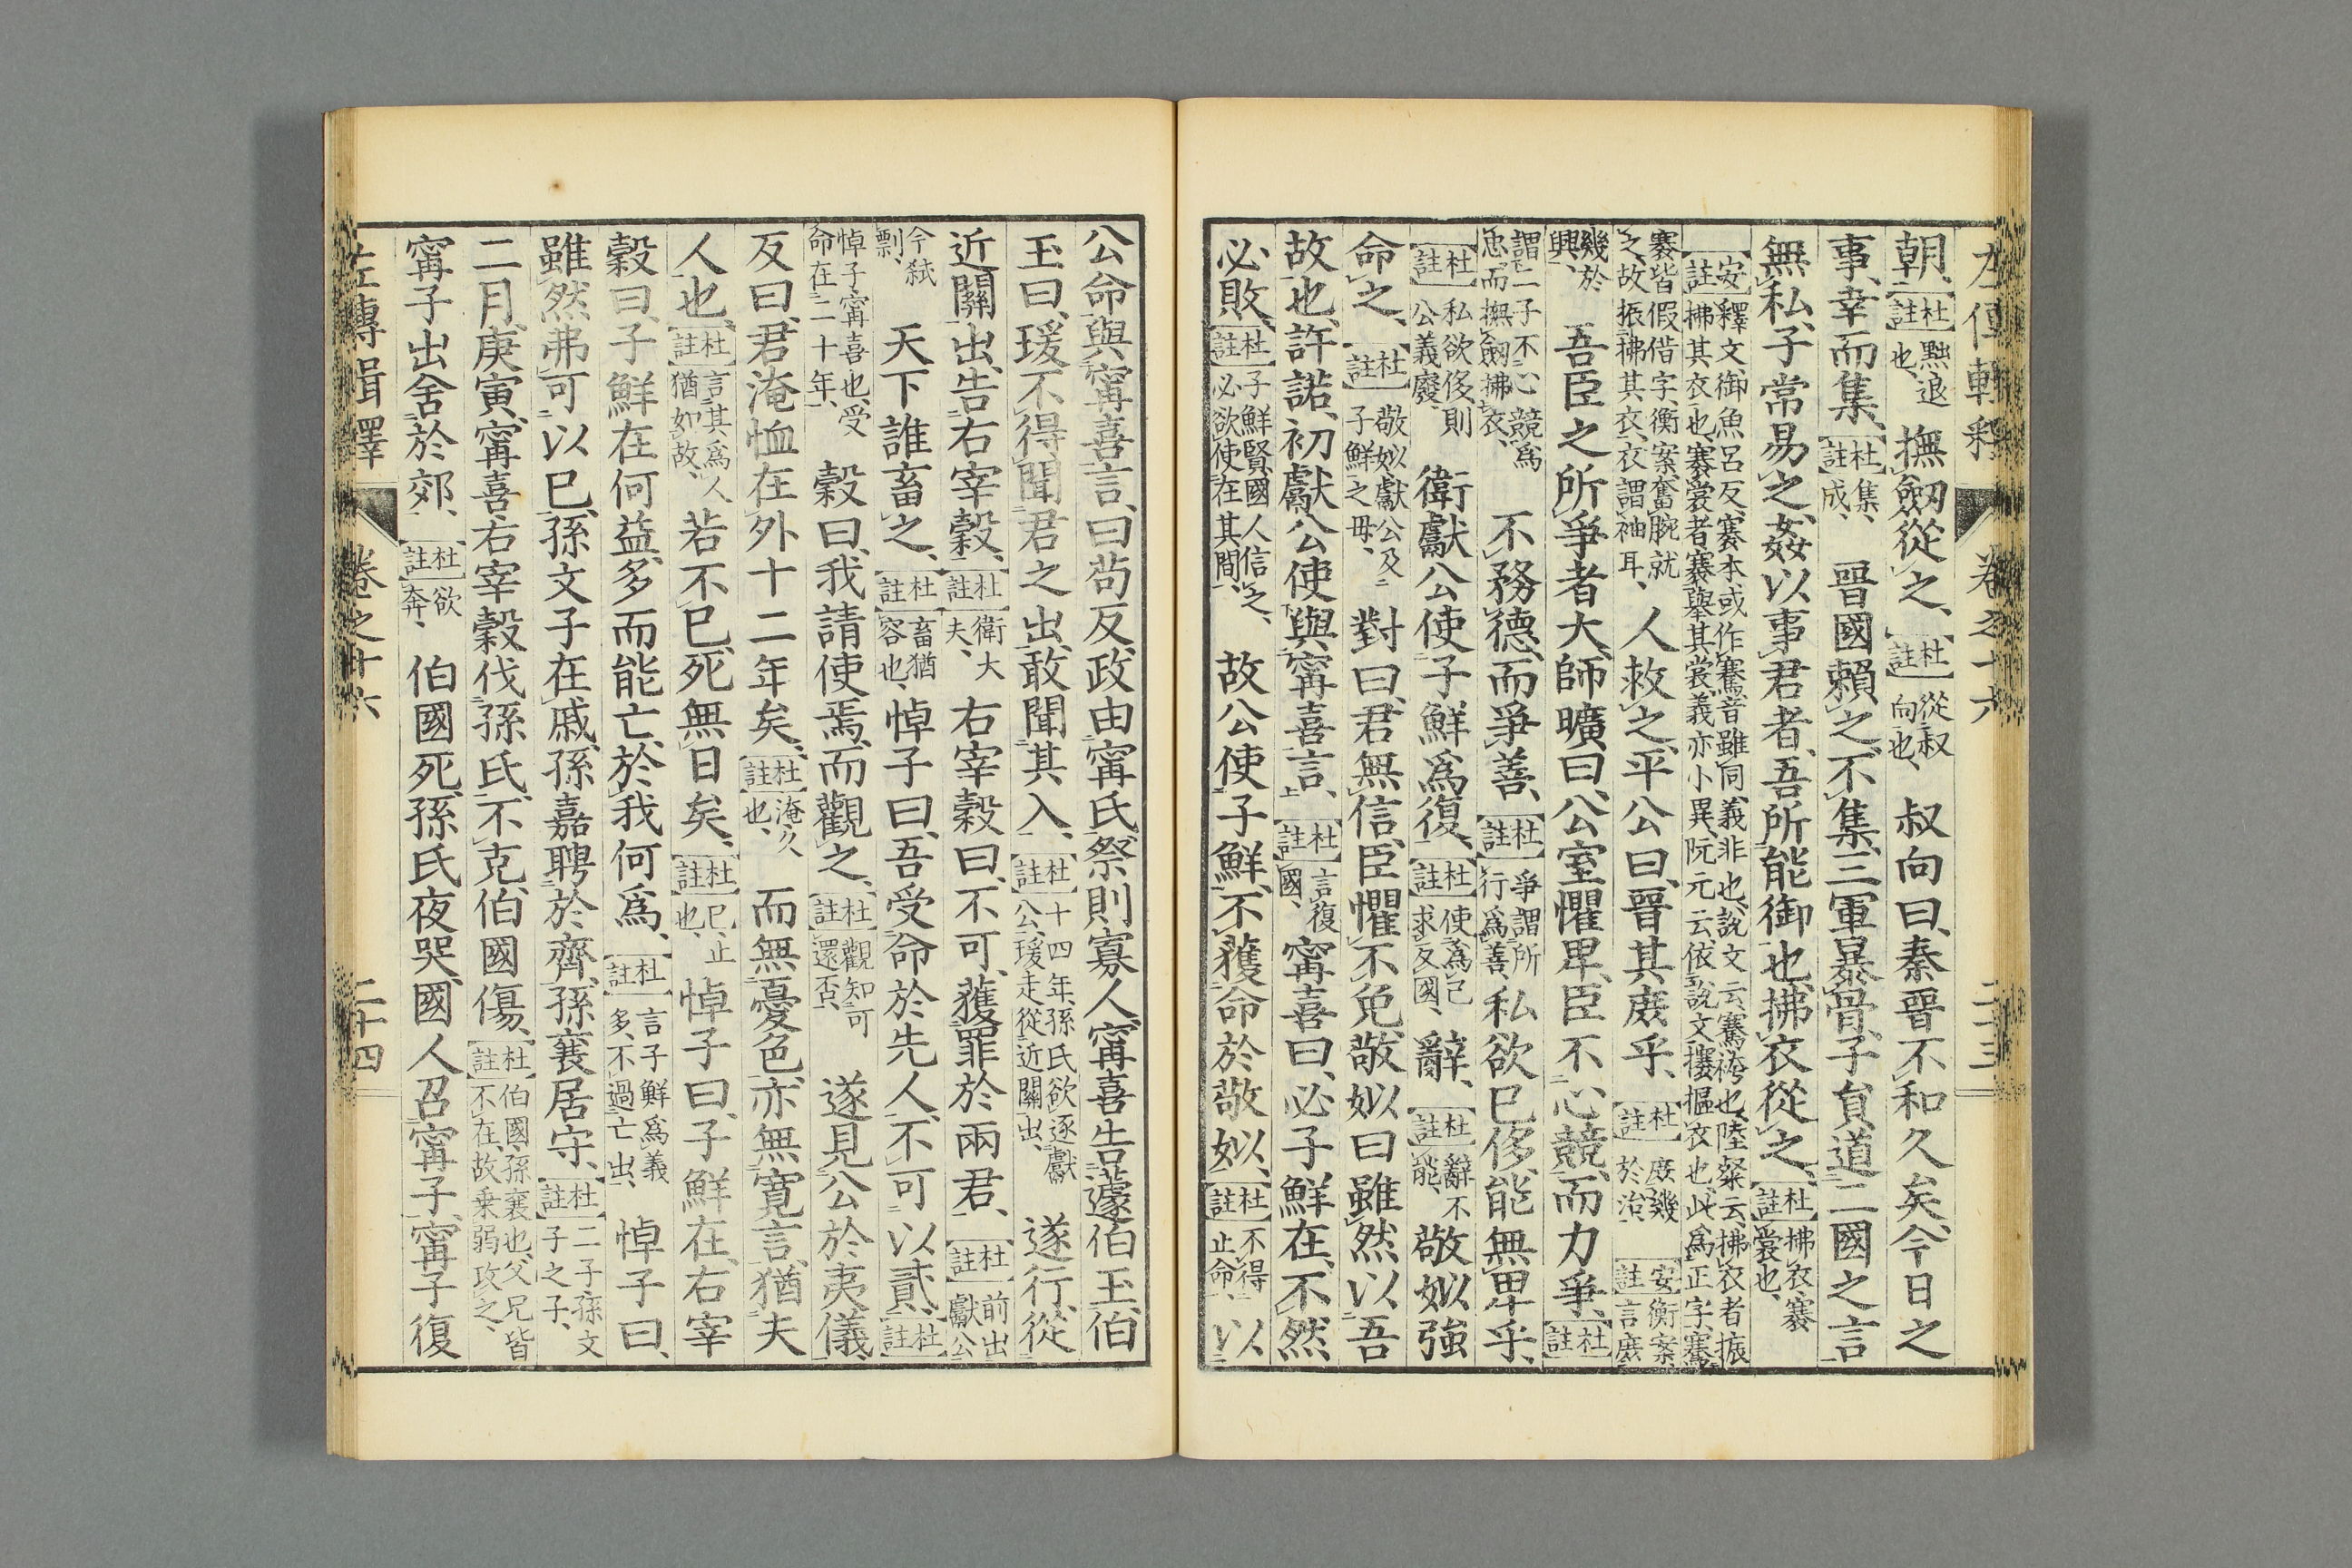 左傳輯釋 卷之十六 二十三
朝、【杜註】黜退也、撫劒從之、【杜註】從叔向也、叔向曰、秦晉不和久矣、今日之
事、幸而集、【杜註】集、成、晉國賴之、不集、三軍暴骨、子員道二國之言
無私、子常易之、姦以事君者、吾所能御也、拂衣從之、【杜註】拂衣、褰裳也、
【安註】釋文、御魚呂反、褰本或作騫、音雖同、義非也、說文云、騫袴也、陸粲云、拂衣者振拂其衣也、褰裳者褰舉其裳、義亦小異、阮元云、依說文、攐摳衣也、此爲正字、騫
褰皆假偕字、衡案、奮腕就之、故振拂其衣、衣謂袖耳、人救之、平公曰、晉其庶乎、【杜註】庶幾於治、【安註】衡案、言庶
幾於興、吾臣之所爭者大、師曠曰、公室懼卑、臣不心競、而力爭、【杜註】
謂二子不心競爲忠、而撫劒拂衣、不務德、而爭善、【杜註】爭謂所行爲善、私欲已侈、能無卑乎、
【杜註】私欲侈、則公義廢、衛獻公使子鮮爲復、【杜註】使爲己求反國、辭、【杜註】辭不能、敬姒強
命之、【杜註】敬姒獻公及子鮮之母、對曰、君無信、臣懼不免、敬姒曰雖然以吾
故也、許諾、初獻公使與寗喜言、【杜註】言復國、寗喜曰、必子鮮在、不然
必敗、【杜註】子鮮賢、國人信之、必欲使在其間、故公使子鮮、不獲命於敬姒、【杜註】不得止命、以
公命與寗喜言、曰苟反、政由寗氏、祭則寡人、寗喜告蘧伯玉、伯
玉曰、瑗不得聞君之出、敢聞其入、【杜註】十四年、孫氏欲逐獻公、瑗走從近關出、遂行、從
近關出、告右宰穀、【杜註】衛大夫、右宰穀曰、不可、獲罪於兩君、【杜註】前出獻公
今弑剽、天下誰畜之、【杜註】畜猶容也、悼子曰、吾受命於先人、不可以貳、【杜註】
悼子寗喜也、受命在二十年、穀曰、我請使焉、而觀之、【杜註】觀知可還否、遂見公於夷儀、
反曰、君淹恤在外十二年矣、【杜註】淹、久也、而無憂色、亦無寛言、猶夫
人也、【杜註】言其爲人猶如故、若不已、死無日矣、【杜註】已、止也、悼子曰、子鮮在、右宰
穀曰、子鮮在何益、多而能亡、於我何爲、【杜註】言子鮮爲義多、不過亡出、悼子曰、
雖然弗可以已、孫文子在戚、孫嘉聘於齊、孫襄居守、【杜註】二子、孫文子之子、
二月、庚寅、寗喜、右宰穀伐孫氏、不克、伯國傷、【杜註】伯國、孫襄也、父兄皆不在、故乗弱攻之、
寗子出舍於郊、【杜註】欲奔、伯國死、孫氏夜哭、國人召寗子、寗子復
左傳輯釋 卷之十六 二十四